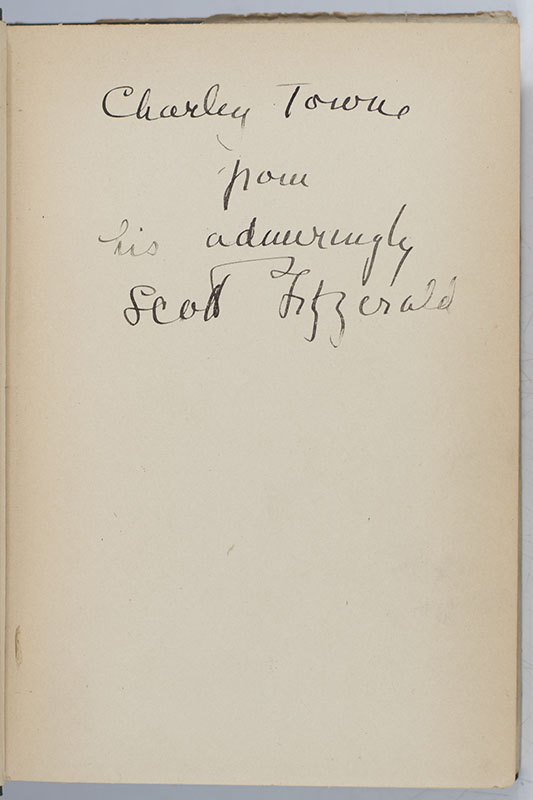 Charley Towne
from
his admiringly
Scott Fitzgerald